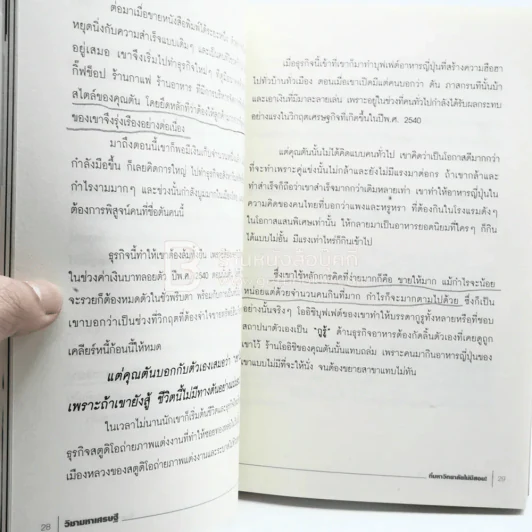 ต่อมาเมื่อขายหนังสือพิมพ์ได้ระยะหนึ่ง
หยุดนิ่งกับความสำเร็จแบบเดิมๆ
อยู่เสมอ เขาจึงเริ่มไปทำธุรกิจใหม่ๆ
กิ๊ฟช็อป ร้านกาแฟ ร้านอาหาร
สไตล์ของคุณตัน โดยยึดหลักที่ว่าต้องให้
ของเขาจึงรุ่งเรืองอย่างต่อเนื่อง
มาถึงตอนนี้เขาก็พอมีเงินเก็บจำนวนหนึ่ง
กำลังมือขึ้น ก็เลยคิดการใหญ่ ไปทำธุรกิจ
กำไรงามมากๆ และช่วงนั้นกำลังบูมมาก
ต้องการพิสูจน์คนที่ชื่อตันคนนี้
ธุรกิจนี้ทำให้เขาต้องล้มทั้งยืน เพราะ
ในช่วงค่าเงินบาทลอยตัว ปีพ.ศ. 2540
จะรวยก็ต้องหมดตัวในชั่วพริบตา
เขาบอกว่าเป็นช่วงที่วิกฤตที่ต้องจำใจขาย
เคลียร์หนี้ก้อนนี้ให้หมด
แต่คุณตันบอกกับตัวเองเสมอว่า
เพราะถ้าเขายังสู้ ชีวิตนี้ไม่มีทางตันอย่าง
ในเวลาไม่นานนักเขาก็เริ่มต้นชีวิต
ธุรกิจสตูดิโอถ่ายภาพแต่งงานที่ทำให้
เมืองหลวงของสตูดิโอถ่ายภาพแต่งงาน
28 วิชามหาเศรษฐี
เมื่อธุรกิจนี้เข้าที่เขาก็มาทำบุฟเฟต์อาหารญี่ปุ่นที่สร้างความฮือฮา
ไปทั่วบ้านทั่วเมือง ตอนเมื่อเขาเปิดมีแต่คนบอกว่า ตัน ภาสกรนทีนั้นบ้า
และเอาเงินที่มีมาละลายเล่น เพราะอยู่ในช่วงที่คนทั่วไปกำลังได้รับผลกระทบ
อย่างแรงในวิกฤตเศรษฐกิจที่เกิดขึ้นในปีพ.ศ. 2540
แต่คุณตันนั้นไม่ได้คิดแบบคนทั่วไป เขาคิดว่าเป็นโอกาสดีมากกว่า
ที่จะทำเพราะคู่แข่งนั้นไม่กล้าและยังไม่มีแรงมาต่อกร ถ้าเขากล้าและ
ทำสำเร็จก็ถือว่าเขาสำเร็จมากกว่าเดิมหลายเท่า เขาทำให้อาหารญี่ปุ่นใน
ความคิดของคนไทยที่บอกว่าแพงและหรูหรา ที่ต้องกินในโรงแรมดังๆ
ในโอกาสแสนพิเศษเท่านั้น ให้กลายมาเป็นอาหารยอดนิยมที่ใครๆ ก็กิน
ได้แบบไม่อั้น มีแรงเท่าไหร่ก็กินเข้าไป
ซึ่งเขาใช้หลักการคิดที่ง่ายมากก็คือ ขายให้มาก แม้กำไรจะน้อย
หน่อยแต่ด้วยจำนวนคนกินที่มาก กำไรก็จะมากตามไปด้วย ซึ่งก็เป็น
อย่างนั้นจริงๆ โออิชิบุฟเฟต์ของเขาทำให้บรรดากูรูทั้งหลายหรือที่ชอบ
สถาปนาตัวเองเป็น "กูรู้" ด้านธุรกิจอาหารต้องกัดลิ้นตัวเองที่เคยดูถูก
เขาไว้ ร้านโออิชิของคุณตันนั้นแทบถล่ม เพราะคนมากินอาหารญี่ปุ่นของ
เขาแบบไม่มีที่จะให้นั่ง จนต้องขยายสาขาแทบไม่ทัน
ที่มหาวิทยาลัยไม่มีสอน! 29